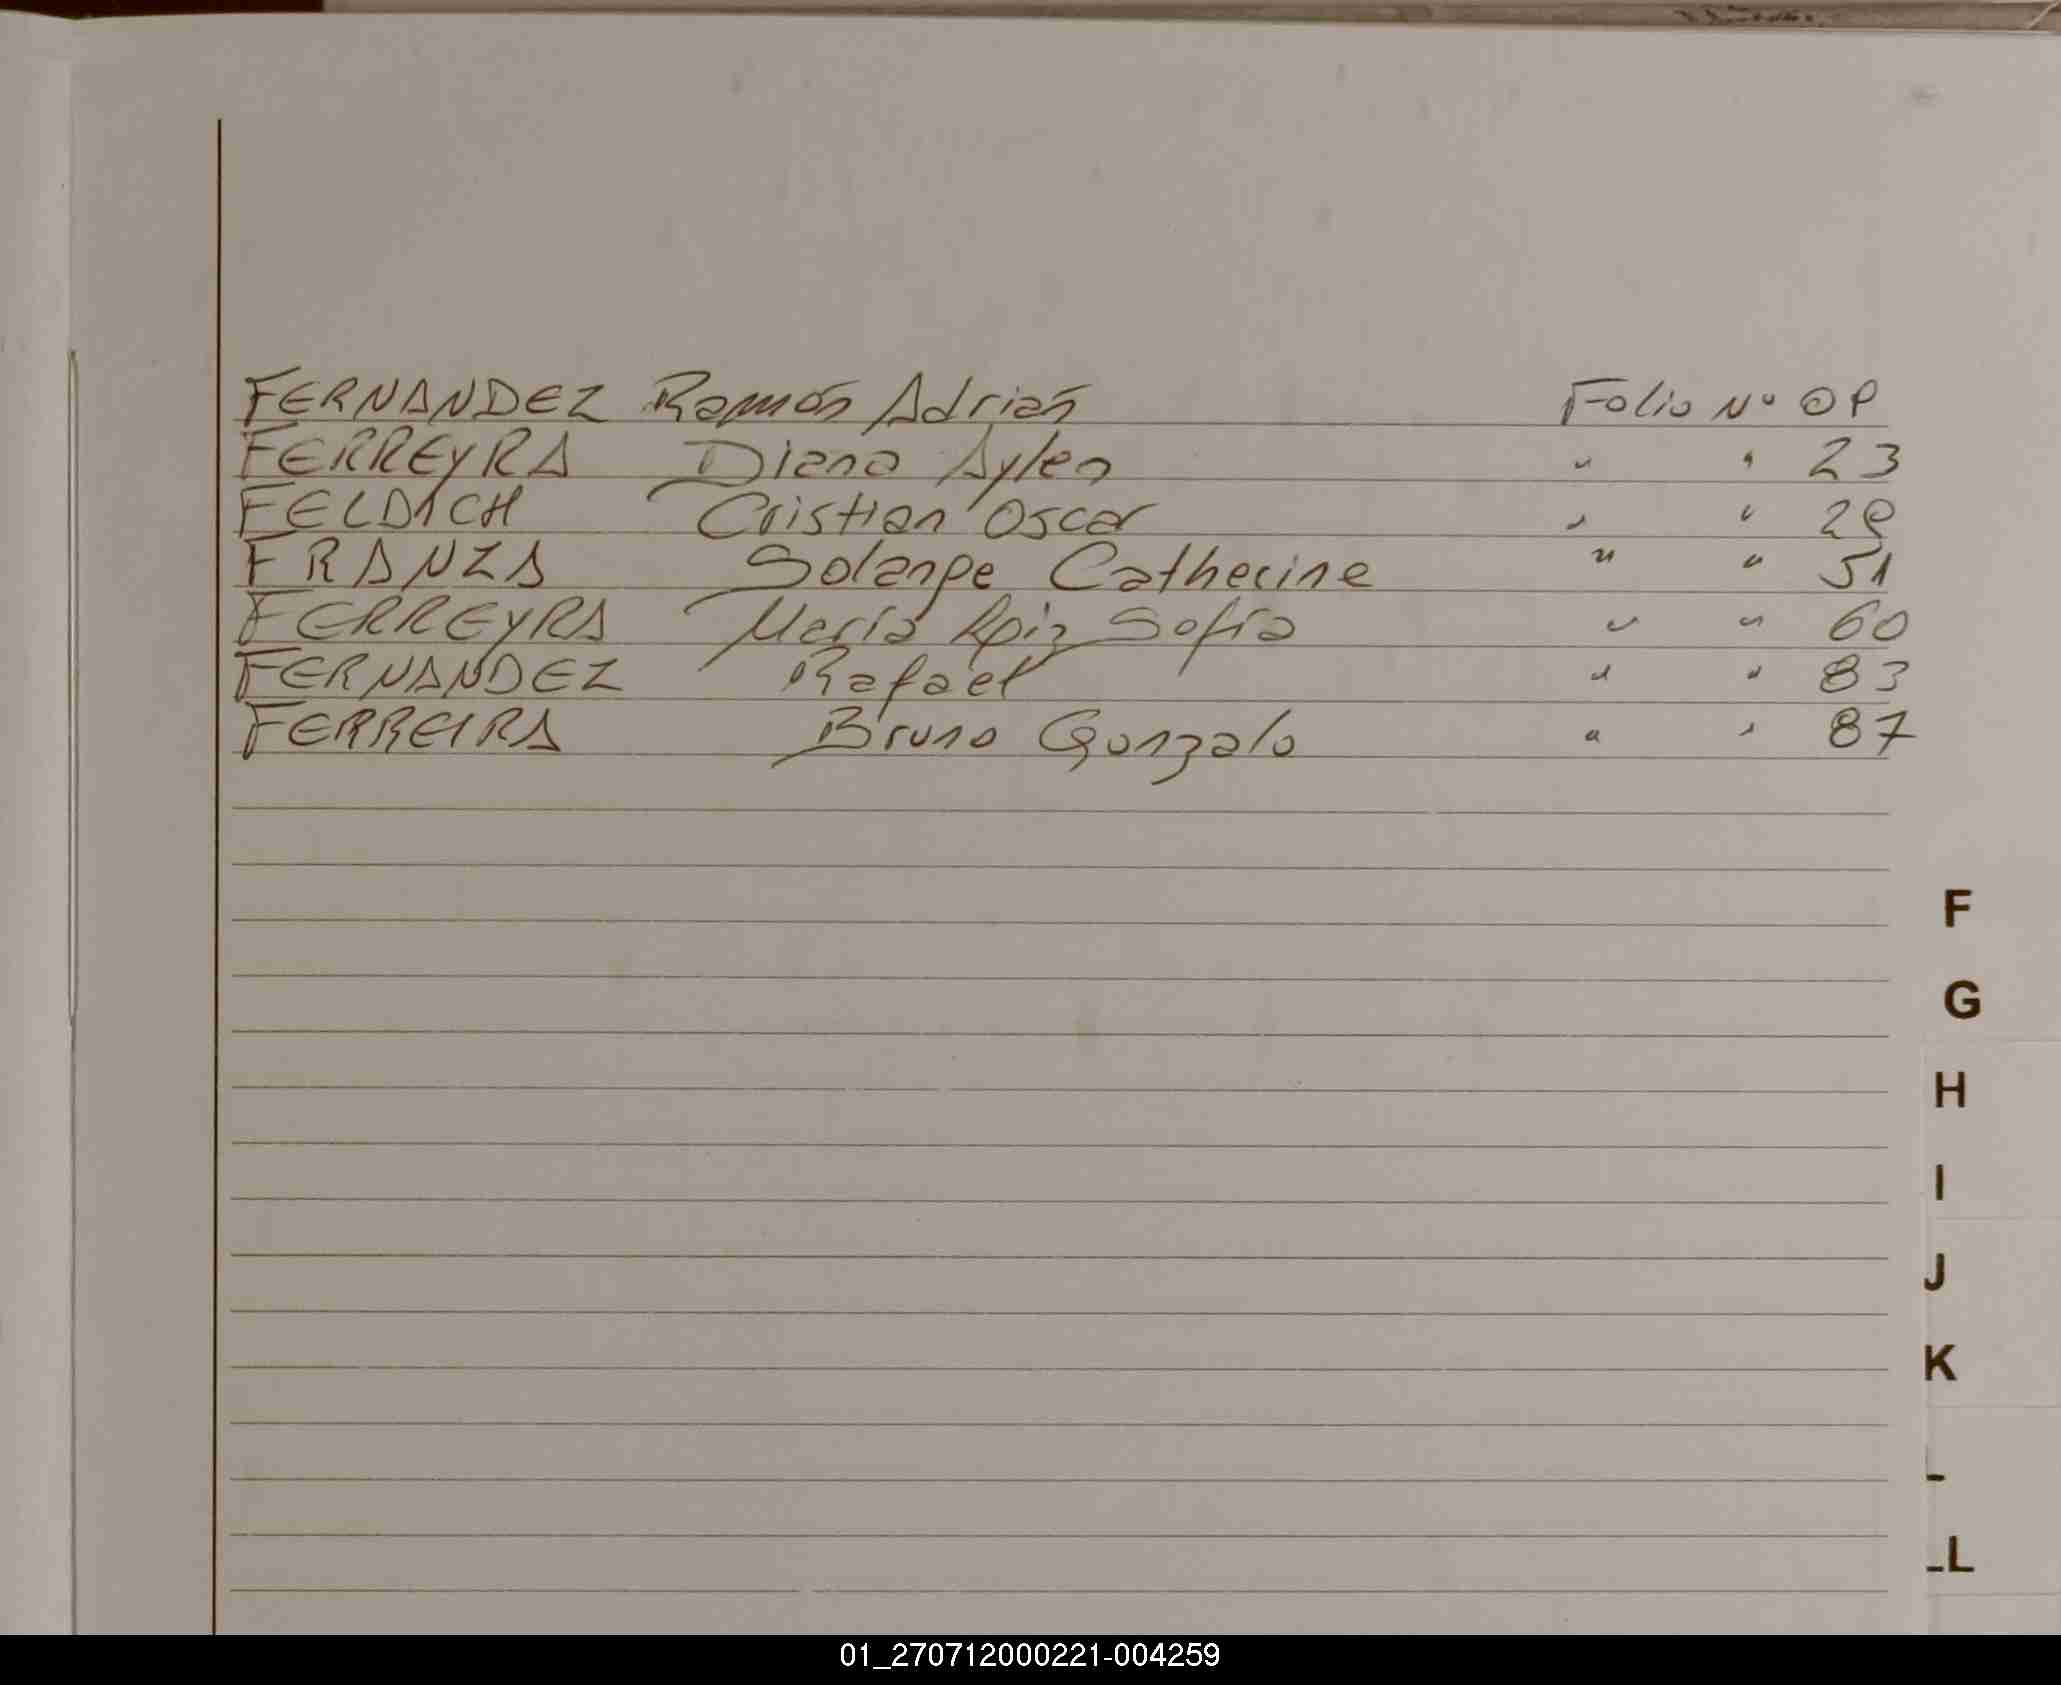 FERNANDEZ Ramón Adrián Folio Nº 09
FERREYRA Diana Aylen " " 23
FELDICH Cristian Oscar " " 29
FRANZA Solange Catherine " " 51
FERREYRA María Sofía " " 60
FERNANDEZ Rafael " " 83
FERREIRA Bruno Gonzalo " " 87
F
G
H
I
J
K
L
LL
01_270712000221-004259